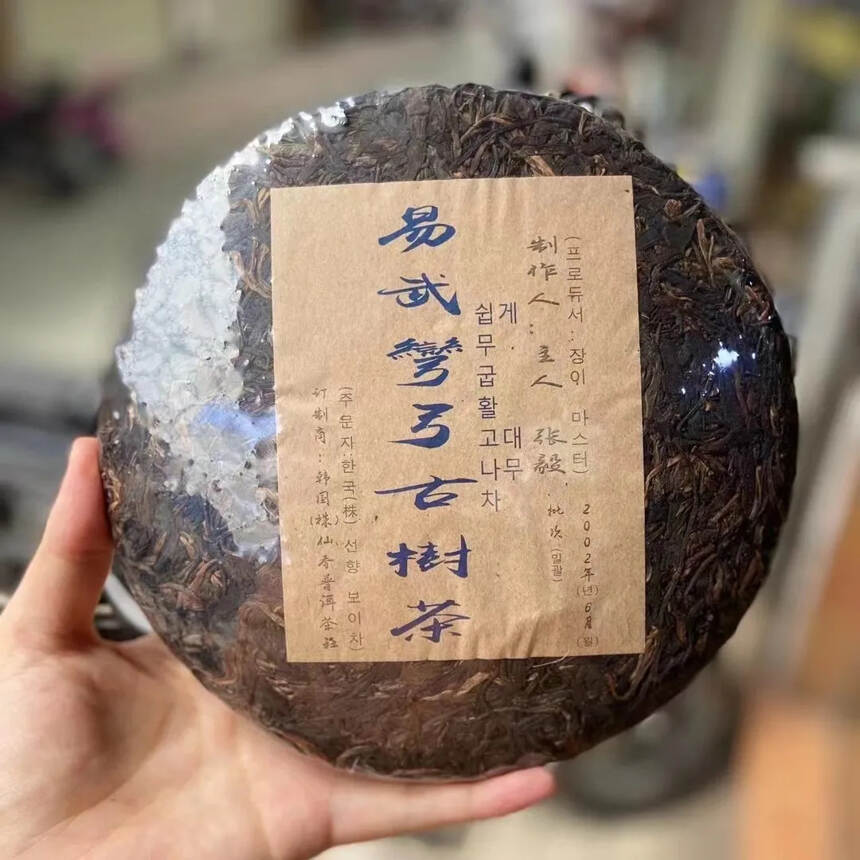 (프로듀서:장이 마스터)
2002年(년)6月(월)
制作人:主人 张毅
批次(일괄)
게 대무
쉽무굽활고나차
易武彎弓古樹茶
(주문자:한국(株) 선향 보이차)
订制商:韩国(株)仙香普洱茶